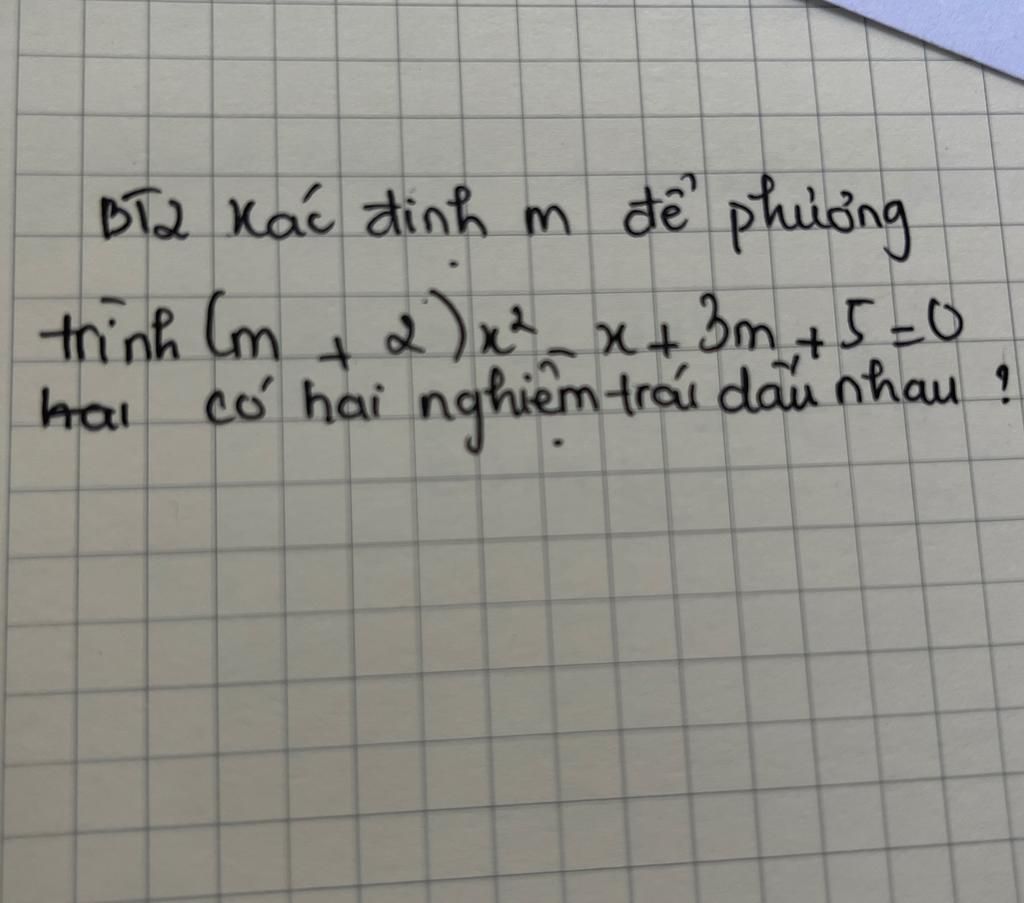 BT2 xác định m để phương
trình (m + 2)x² - x + 3m + 5 = 0
hai có hai nghiệm trái dấu nhau ?